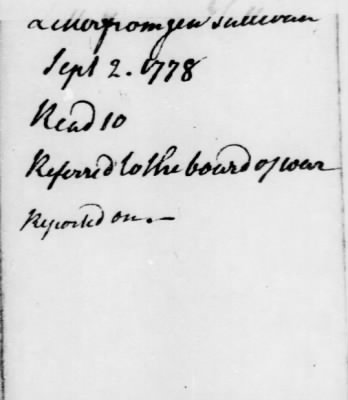 Letter from gen Sullivan
Sept 2. 1778
Read 10
Referred to the board of war
Reported on. –